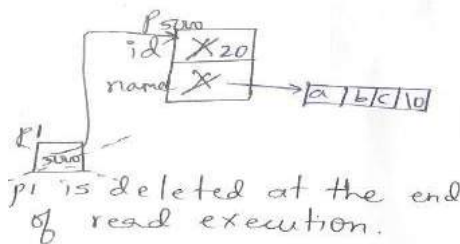 P 5000
id X 20
name X
a b c \0
p1
5000
p1 is deleted at the end
of read execution.